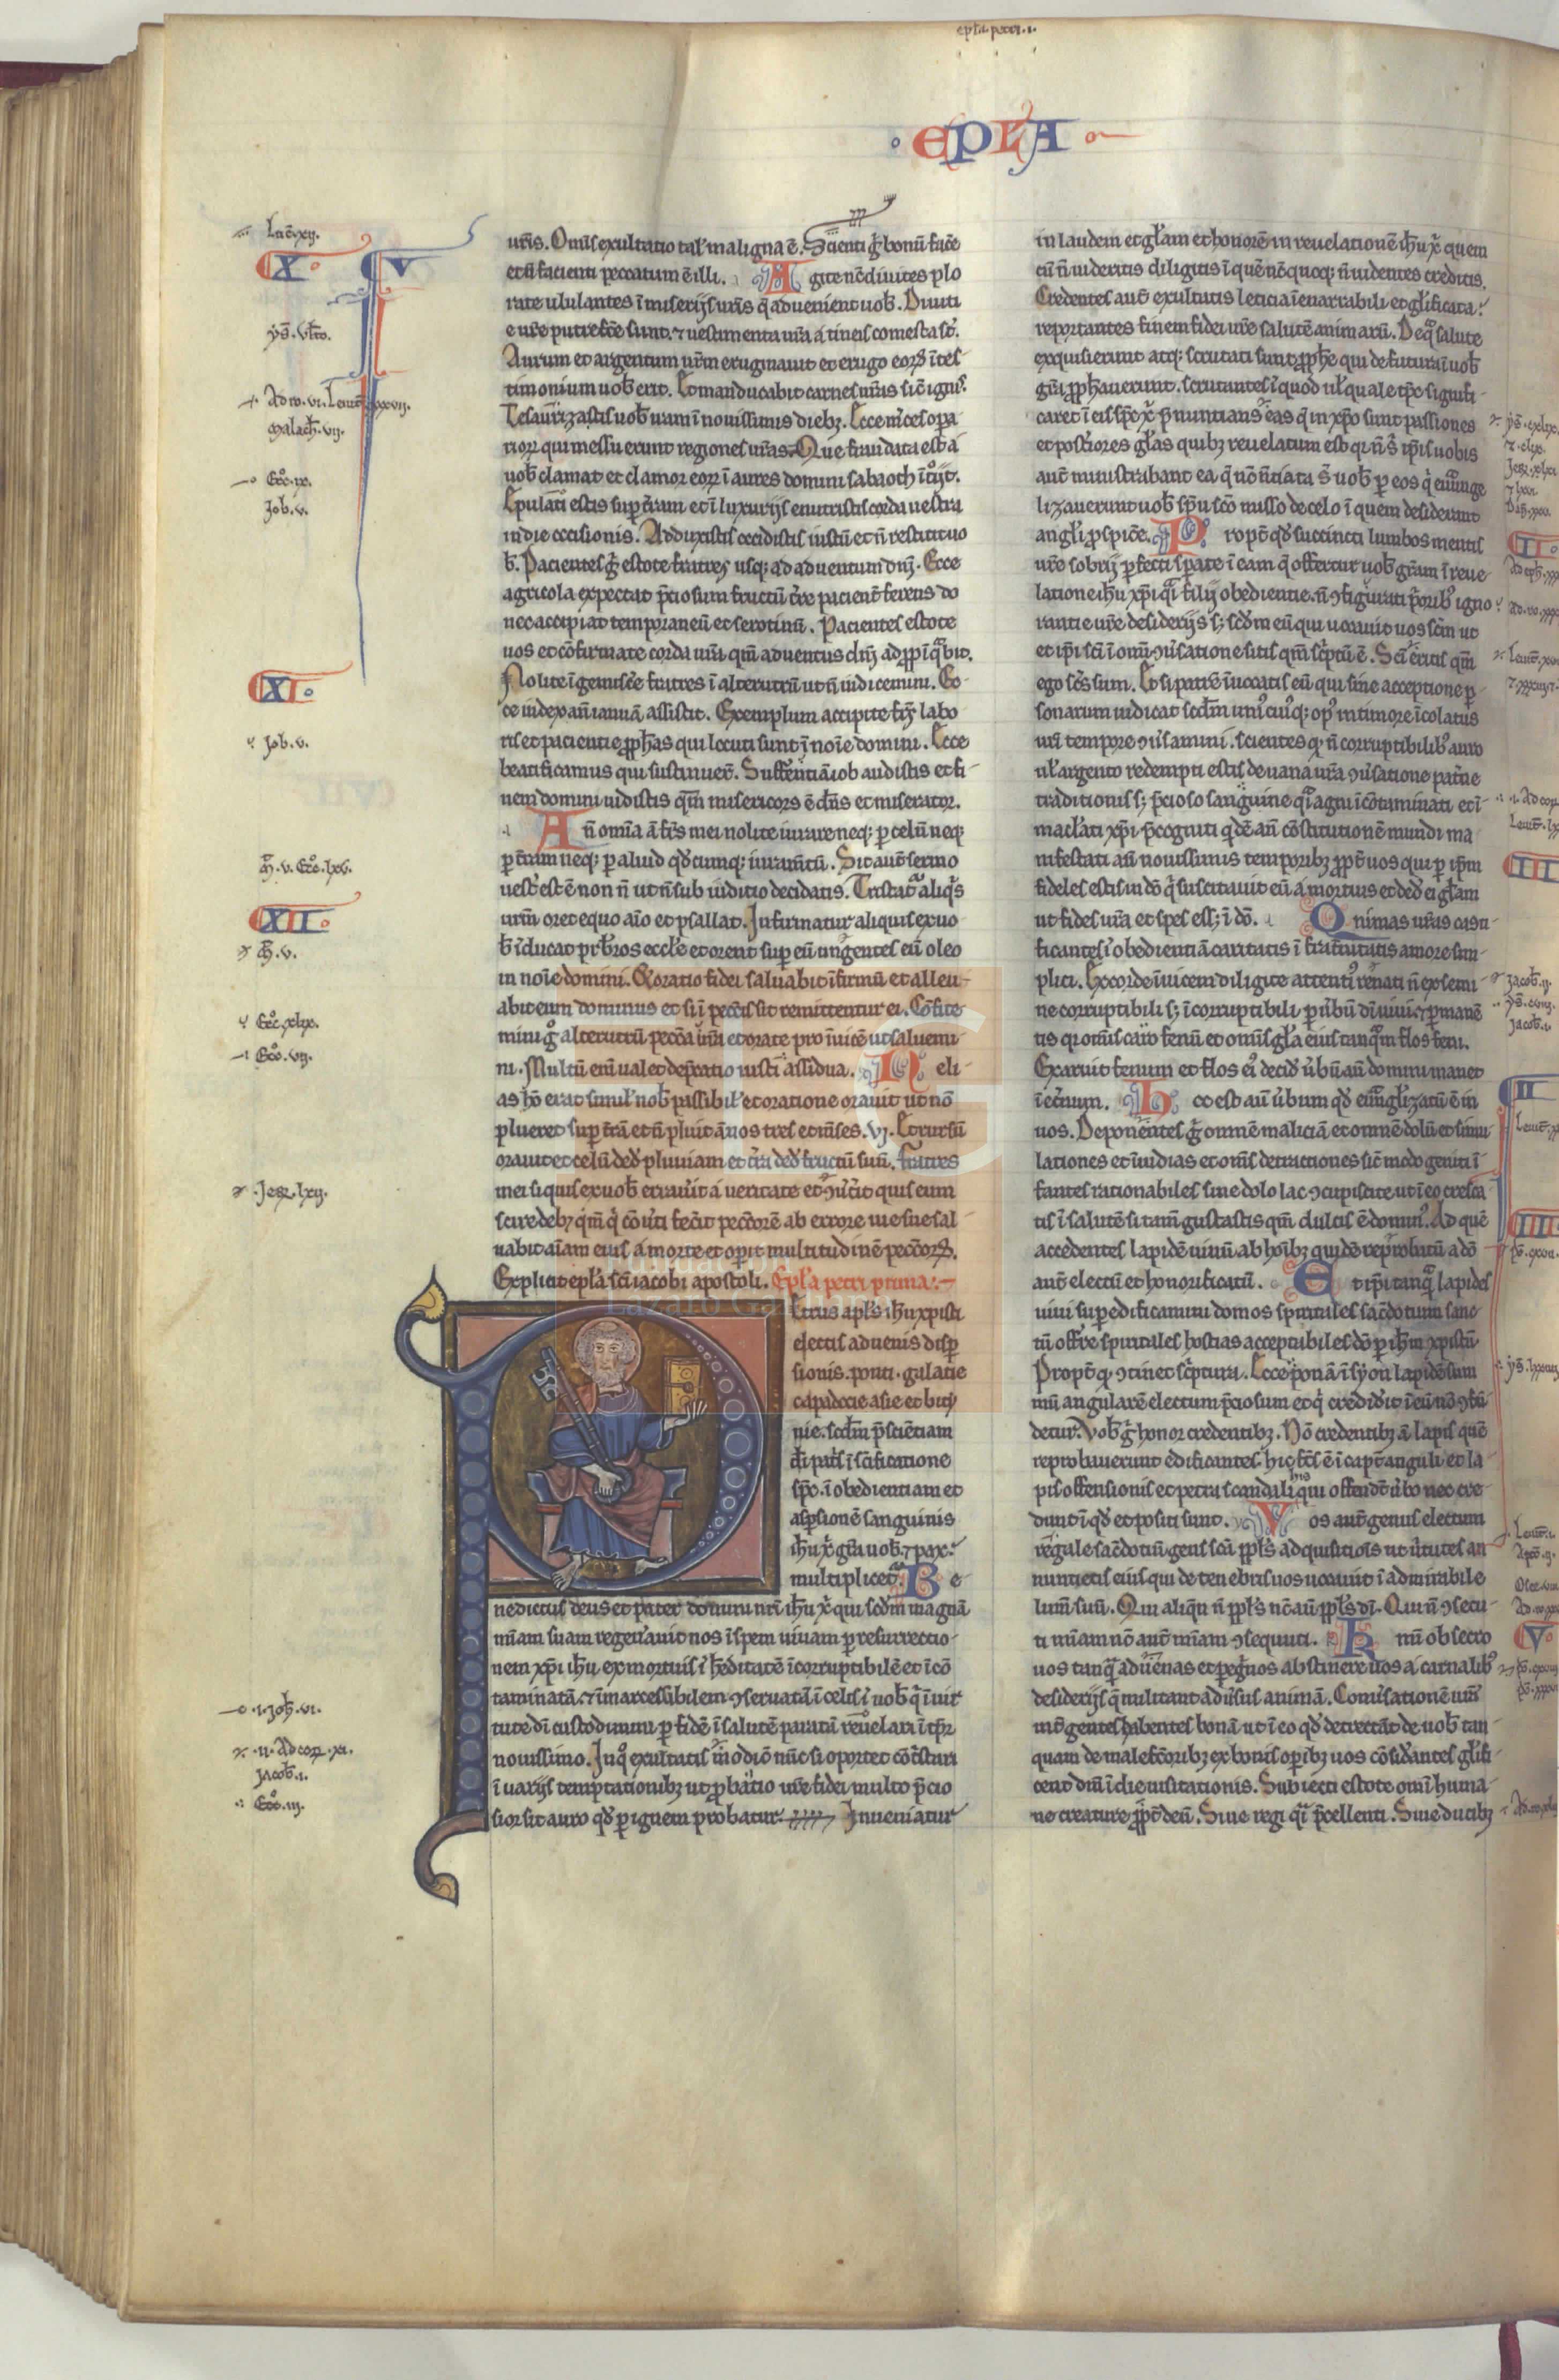 epl'a. petri. i.
EPL'A
Luc. xij.
X.
V
ys. vlto.
Ad ro. vi. Leuit. xxvij.
Malach. vij.
Ecc. ix.
Job. v.
XI.
Job. v.
M. v. Ecc. lxv.
XII.
M. v.
Ecc. xlix.
Ecc. vij.
Jer. lxij.
i. Joh. vi.
ij. Ad cor. xi.
Jacob. i.
Ecc. iij.
ur̄is. Om̄is exultatio tal' maligna ē. Scienti g̊ bonū facē
et n̄ facienti peccatum ē illi. Agite nc̄ diuites plo
rate ululantes ī miserijs ur̄is q̄ aduenient uob̄. Diuiti
e ur̄e putrefc̄e sunt. ⁊ uestimenta ur̄a a tineis comesta st̄.
Aurum et argentum ur̄m eruginauit et erugo eoꝝ ī tes
timonium uob̄ erit. Et manducabit carnes ur̄as sic̄ ignis.
Tesaurizastis uob̄ iram ī nouissimis diebꝫ. Ecce m̄ces opa
rioꝝ qui messuerunt regiones ur̄as. Que fraudata est a
uob̄ clamat et clamor eoꝝ ī aures domini sabaoth ītijt.
Epulati estis sup t̄ram et ī luxurijs enutristis corda uestra
in die occisionis. Adduxistis occidistis iustū et n̄ restitit uo
b̄. Pacientes g̊ estote fratres usqꝫ ad aduentum dn̄i. Ecce
agricola expectat p̄ciosum fructū t̄re pacient̄ ferens do
nec accipiat temporaneū et serotinū. Pacientes estote
uos et cōfirmate corda ur̄a qm̄ aduentus dn̄i adpp̄īqᵃbit.
Nolite īgemiscē fratres ī alterutrū ut n̄ iudicemini. Ec
ce iudex an̄ ianuā assistit. Exemplum accipite fr̄s labo
ris et pacientie pph̄as qui locuti sunt ī noīe domini. Ecce
beatificamus qui sustinuer̄. Sufferentiā iob audistis et fi
nem domini uidistis qm̄ misericors ē dn̄s et miserator.
An̄ omīa ā fr̄s mei nolite iurare neqꝫ p celū neqꝫ
p t̄ram neqꝫ p aliud qd̄cumqꝫ iuram̄tū. Sit aut̄ sermo
uest̄ est ē non n̄ ut n̄ sub iuditio decidatis. Tristatᵃ aliqᵉs
ur̄m oret equo aīo et psallat. Infirmatur aliquis ex uo
b̄ īducat prb̄ros eccl'e et orent sup eū ungentes eū oleo
in noīe domini. Et oratio fidei saluabit īfirmū et alleu
abit eum dominus et si ī pecc̄is sit remittentur ei. Cōfite
mini g̊ alterutrū pecc̄a ur̄a et orate pro īuicē ut saluemi
ni. Multū enī ualet dep̄catio iusti assidua. Heli
as hō erat simil' nob̄ passibil' et oratione orauit ut nō
plueret sup t̄rā et n̄ pluit ānos tres et m̄ses. vj. Et rursū
orauit et celū ded̄ pluuiam et t̄ra ded̄ fructū suū. Fratres
mei si quis ex uob̄ errau'it a ueritate et ɔu't'it quis eum
scire debꝫ qm̄ q̄ cōu'ti fec'it pecc̄orē ab errore uie sue sal
uabit aīam eius a morte et opit multitudinē pecc̄oꝝ.
Explicit epl'a sc̄i iacobi apostoli. Epl'a petri prima.
Petrus apl's ih̄u xpisti
electis aduenis disp
sionis. ponti. galatie
capadocie asie et bitij
nie. scdm̄ p̄sciētiam
di patis ī sc̄ificatione
spc̄. ī obedientiam et
aspsionē sanguinis
ih̄u x̄ gr̄a uob̄. ⁊ pax.
multiplicetᵃ. Be
nedictus deus et pater domini nr̄i ih̄u x̄ qui scdm̄ magnā
m̄iam suam regen'auit nos ī spem uiuam p resurrectio
nem xp̄i ih̄u ex mortuis ī h'editatē īcorruptibilē et īcō
taminatā. ⁊ īmarcessibilem ɔseruatā ī celis ī uob̄ qᵢ ī uir
tute di custodimini p fidē ī salutē paratā reuelari ī tp̄r
nouissimo. In qᵒ exultatis modicō nūc si oportet cōt̄stari
ī uarijs temptationibꝫ ut pbatio ur̄e fidei multo p̄cio
sior sit auro qd̄ p ignem probatur. Inueniatur
in laudem et gl'am et honorē in reuelationē ih̄u x̄ quem
cū n̄ uideritis diligitis ī quē nc̄ quoqꝫ n̄ uidentes creditis.
Credentes aut̄ exultatis leticia īenarrabili et gl'ificata.
reportantes finem fidei ur̄e salutē animarū. De qᵃ salute
exquisierunt atqꝫ scrutati sunt pph̄e qui de futura ī uob̄
gr̄a pph̄auerunt. scrutantes ī quod ul' quale tp̄c signifi
caret ī eis sp̄c x̄ p̄nuntians eas q̄ in xp̄o sunt passiones
et post'iores gl'as quibꝫ reuelatum est qr n̄ s' ip̄is uobis
aut̄ ministrabant ea q̄ nc̄ n̄tiata s' uob̄ p eos qᵢ euāge
lizauerunt uob̄ sp̄u sc̄o misso de celo ī quem desiderant
angl'i pspicē. Propt̄ qd̄ succincti lumbos mentis
ur̄e sobrij pfecti spate ī eam q̄ offertur uob̄ gr̄am ī reue
latione ih̄u xp̄i qᵢ filij obedientie. n̄ ɔfigurati p̄orib' igno
rantie ur̄e desiderijs sꝫ scdm̄ eū qui uocauit uos sc̄m ut
et ip̄i sc̄i ī omī ɔu'satione sitis qm̄ sc'ptū ē. Sc̄i eritis qm̄
ego sc̄s sum. Et si patrē īuocatis eū qui sine acceptione p
sonarum iudicat scdm̄ uni'cui'qꝫ op' in timore īcolatus
ur̄i tempore ɔu'samini. scientes qꝫ n̄ corruptibilib' auro
ul' argento redempti estis de uana ur̄a ɔu'satione pat'ne
traditionis sꝫ p̄cioso sanguine qᵢ agni īcōtaminati et ī
macl'ati xp̄i p̄cogniti qd̄ē an̄ cōstitutionē mundi ma
nifestati aū nouissimis temporibꝫ ppt̄ uos qui p ip̄m
fideles estis in dō qᵢ suscitauit eū a mortuis et ded̄ ei gl'am
ut fides ur̄a et spes ess̄ꝫ ī dō. Animas ur̄as casti
ficantes ī obedientiā caritatis ī frat'nitatis amore sim
plici. Ex corde īuicem diligite attenti' renati n̄ ex semi
ne corruptibili sꝫ īcorruptibili p u'bū dī uiui ⁊ pmanē
tis qr om̄is caro fenū et om̄is gl'a eius tanqᵃm flos feni.
Exaruit fenum et flos ei' decid̄ u'bū aū domini manet
ī et'num. Hoc est aū u'bum qd̄ euāgl'izatū ē in
uos. Deponentes g̊ omnē maliciā et omnē dolū et simu
lationes et īuidias et om̄s detractiones sic̄ modo geniti ī
fantes rationabiles sine dolo lac ɔcupiscite ut ī eo cresca
tis ī salutē si tam̄ gustastis qm̄ dulcis ē domin'. Ad quē
accedentes lapidē uiuū ab hoībꝫ quidē rep̄robatū a dō
aut̄ electū et honorificatū. Et ip̄i tanqᵃ lapides
uiui supedificamini domos spiritales sac̄dotium sanc
tū offr̄e spiritales hostias acceptabiles dō p ih̄m xpistū
Propt̄ qꝫ ɔtinet sc'ptura. Ecce ponā ī syon lapidē sum
mū angularē electum p̄ciosum et qᵢ credid'it ī eū nō ɔfū
detur. Vob̄ g̊ honor credentibꝫ. Nō credentibꝫ ā lapis quē
reprobauerunt edificantes. hic fc̄s ē ī capt̄ anguli et la
pis offensionis et petra scandali hijs qui offendūt u'bo nec cre
dunt ī qd̄ et positi sunt. Vos aut̄ genus electum
regale sac̄dotiū gens sc̄a ppl's adquisitiōis ut u'tutes an
nuntietis eius qui de tenebris uos uocauit ī admirabile
lum̄ suū. Qui aliqn̄ n̄ ppl's nc̄ aū ppl's dī. Qui n̄ ɔsecu
ti m̄iam nc̄ aut̄ m̄iam ɔsequuti. Kmi obsecro
uos tanqᵃ aduenas et pegᵢnos abstinere uos a carnalib'
desiderijs q̄ militant adu'sus animā. Conu'sationē ur̄m
int̄ gentes habentes bonā ut ī eo qd̄ detrectāt de uob̄ tan
quam de malefc̄oribꝫ ex bonis opibꝫ uos cōsid'antes gl'ifi
cent dm̄ ī die uisitationis. Subiecti estote omī huma
ne creature ppt̄ deū. Siue regi qᵢ p̄cellenti. Siue ducibꝫ
II.
III
II
IIII
V.
Fundación
Lázaro Galdiano